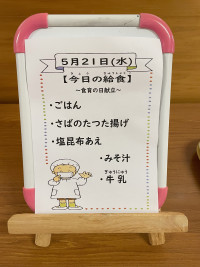 5月21日(水)
【今日の給食】
～食育の日献立～
・ごはん
・さばのたつた揚げ
・塩昆布あえ
・みそ汁
・牛乳